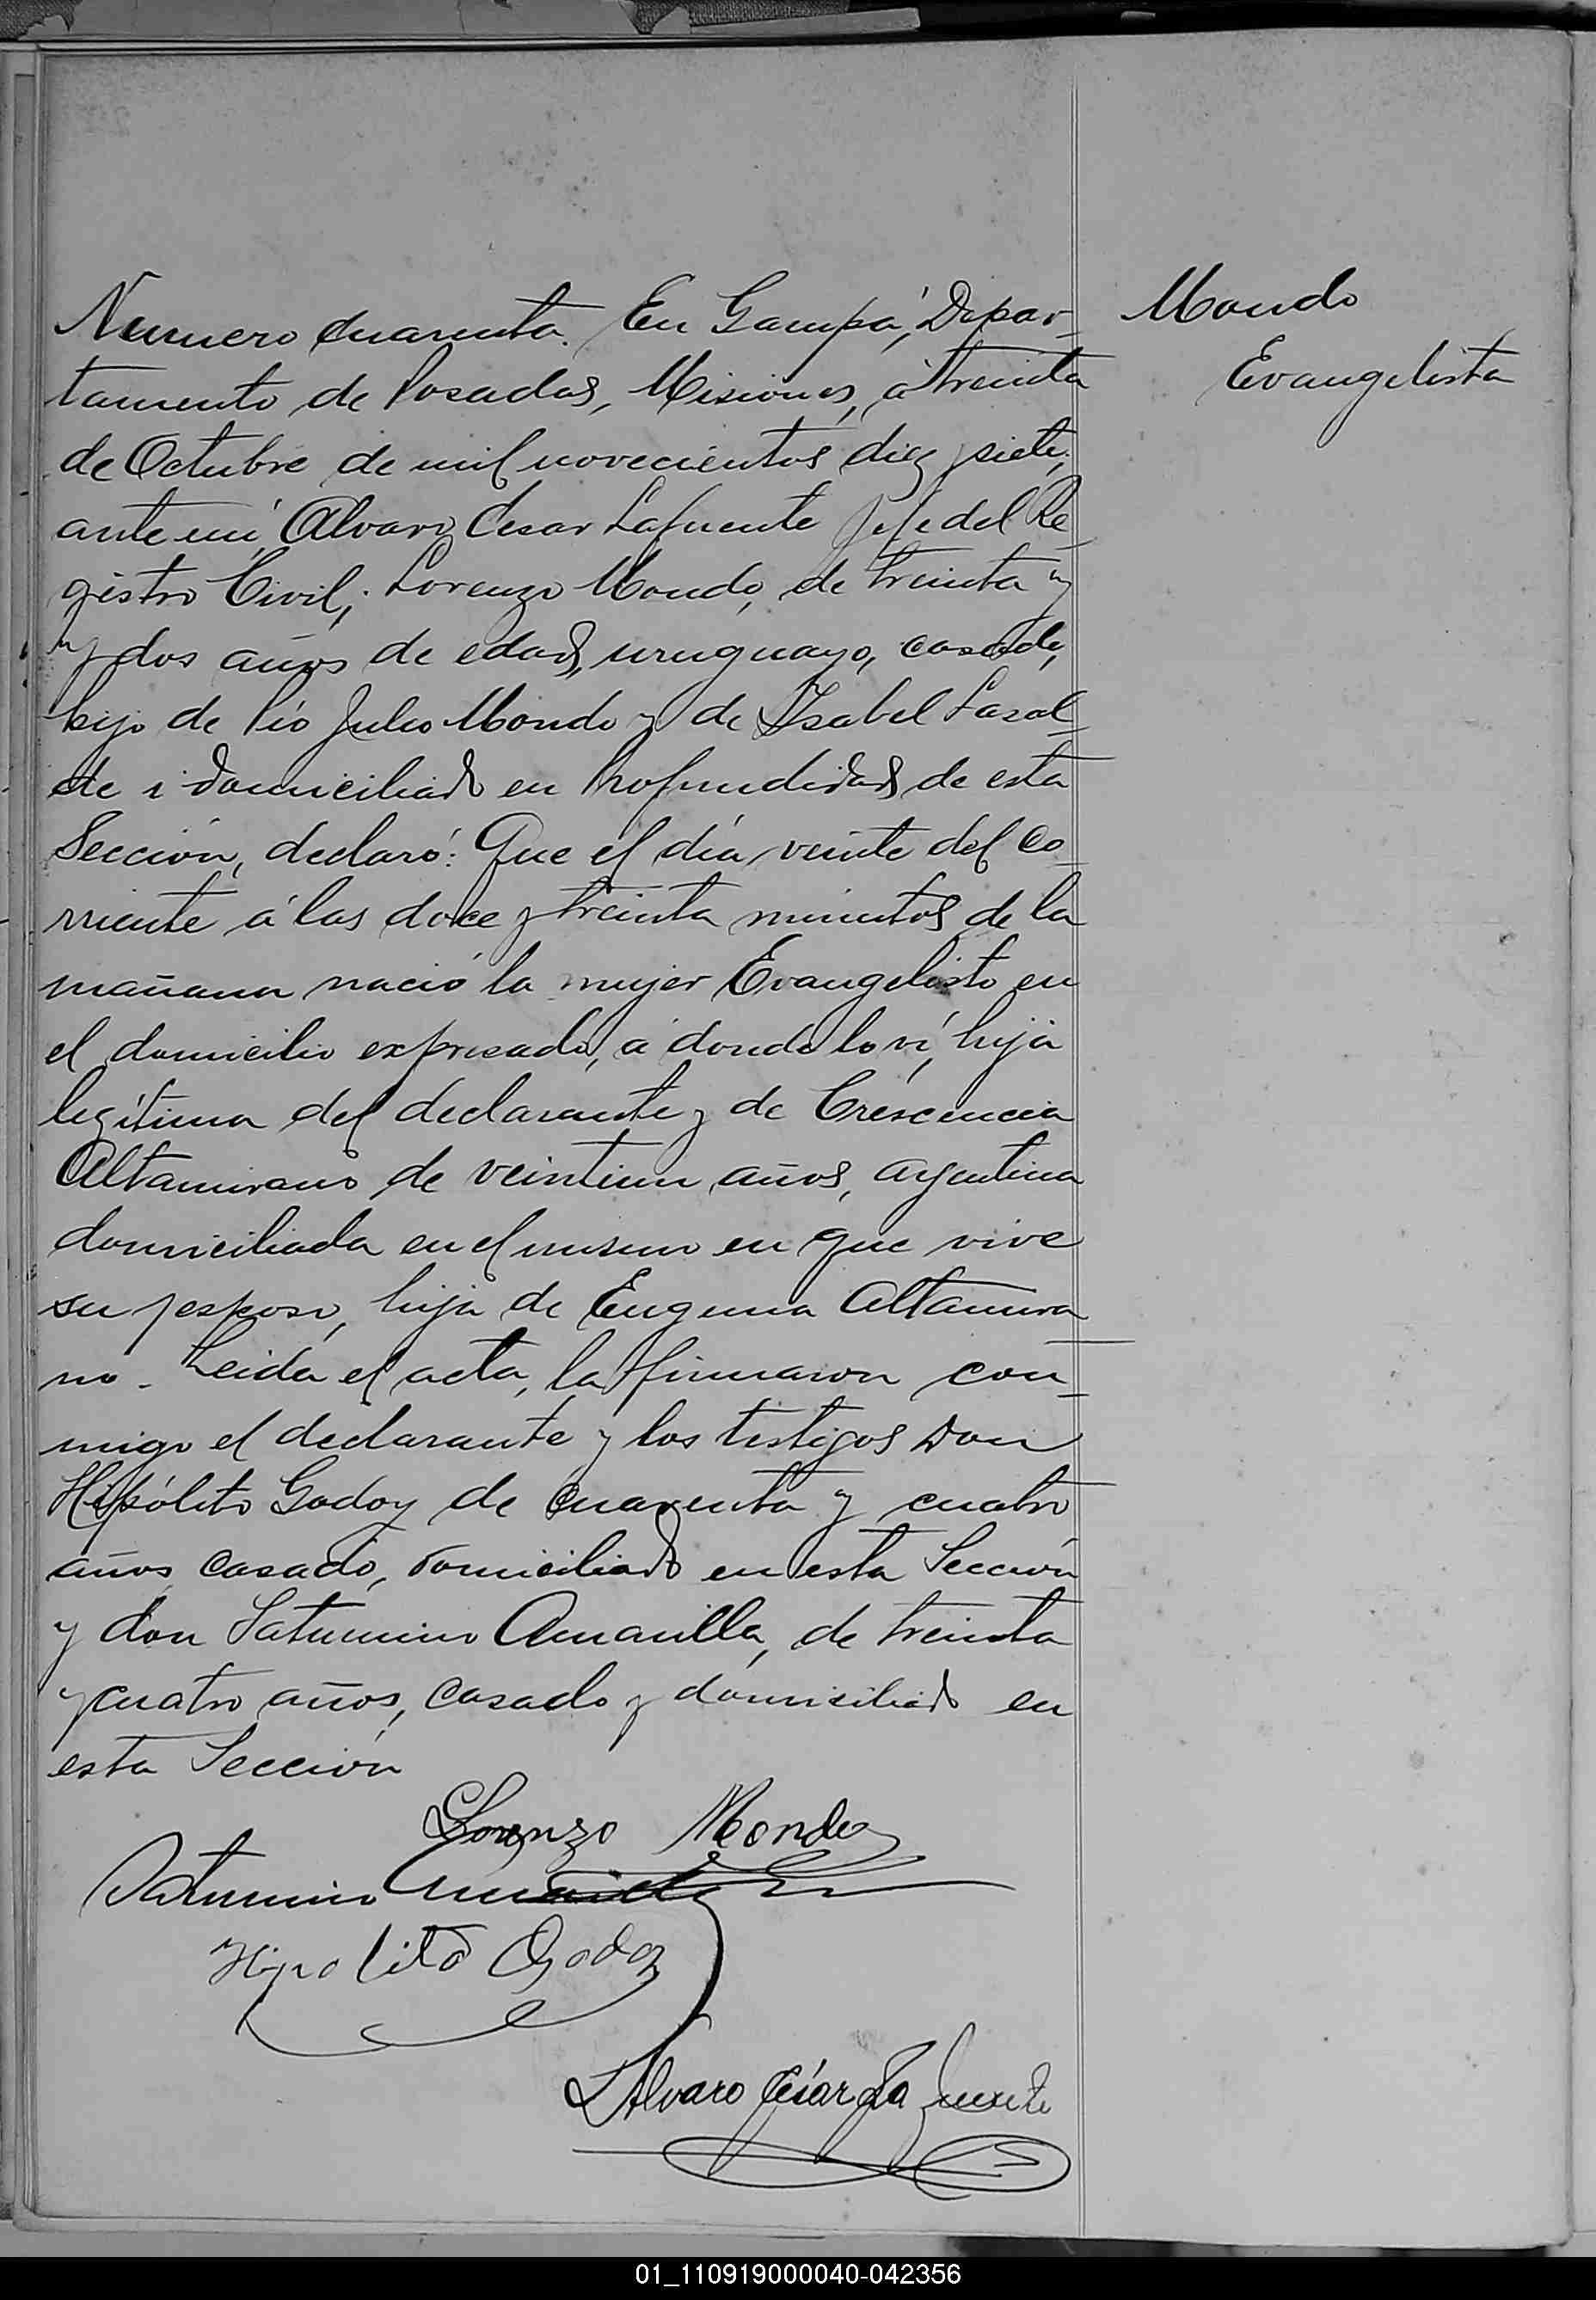 Mondo
Evangelista
Numero cuarenta. En Garupá, Depar-
tamento de Posadas, Misiones, á treinta
de Octubre de mil novecientos diez y siete,
ante mí, Alvaro Cesar Lafuente Jefe del Re-
gistro Civil; Lorenzo Mondo, de treinta y
y dos años de edad, uruguayo, casado,
hijo de Pío Julio Mondo y de Isabel Lasal-
de i domiciliado en Profundidad de esta
Sección, declaró: Que el día veinte del co-
rriente á las doce y treinta minutos de la
mañana nació la mujer Evangelista en
el domicilio expresado, á donde lo ví, hija
legítima del declarante y de Crescencia
Altamirano de veintiun años, argentina
domiciliada en el mismo en que vive
su esposo, hija de Eugenia Altamira
no. Leida el acta, la firmaron con-
migo el declarante y los testigos Don
Hipólito Godoy de cuarenta y cuatro
años casado, domiciliado en esta Sección
y don Saturnino Amarilla, de treinta
y cuatro años, casado y domiciliado en
esta Sección
Lorenzo Mondo
Saturnino Amarilla
Hipolito Godoy
Alvaro César Lafuente
01_110919000040-042356